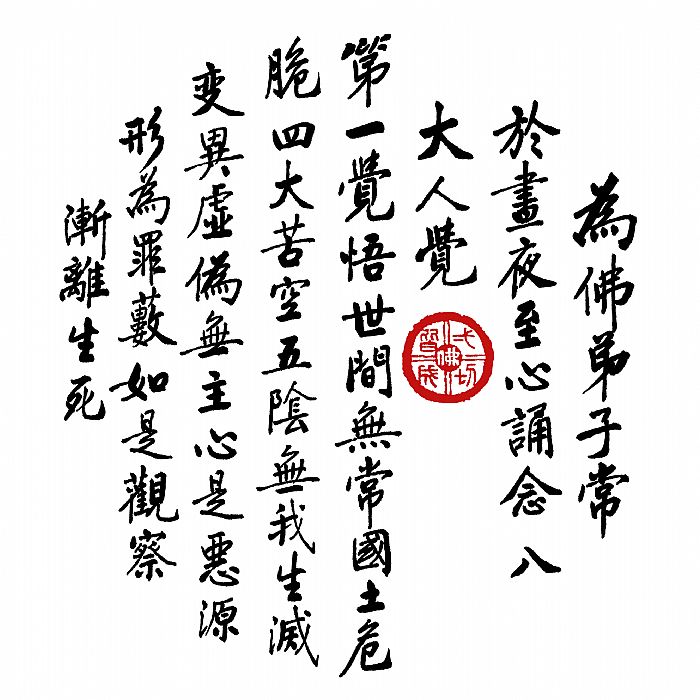 為佛弟子常
於晝夜至心誦念八
大人覺
第一覺悟世間無常國土危
脆四大苦空五陰無我生滅
变異虛偽無主心是惡源
形為罪藪如是觀察
漸離生死
一切
佛
皆成